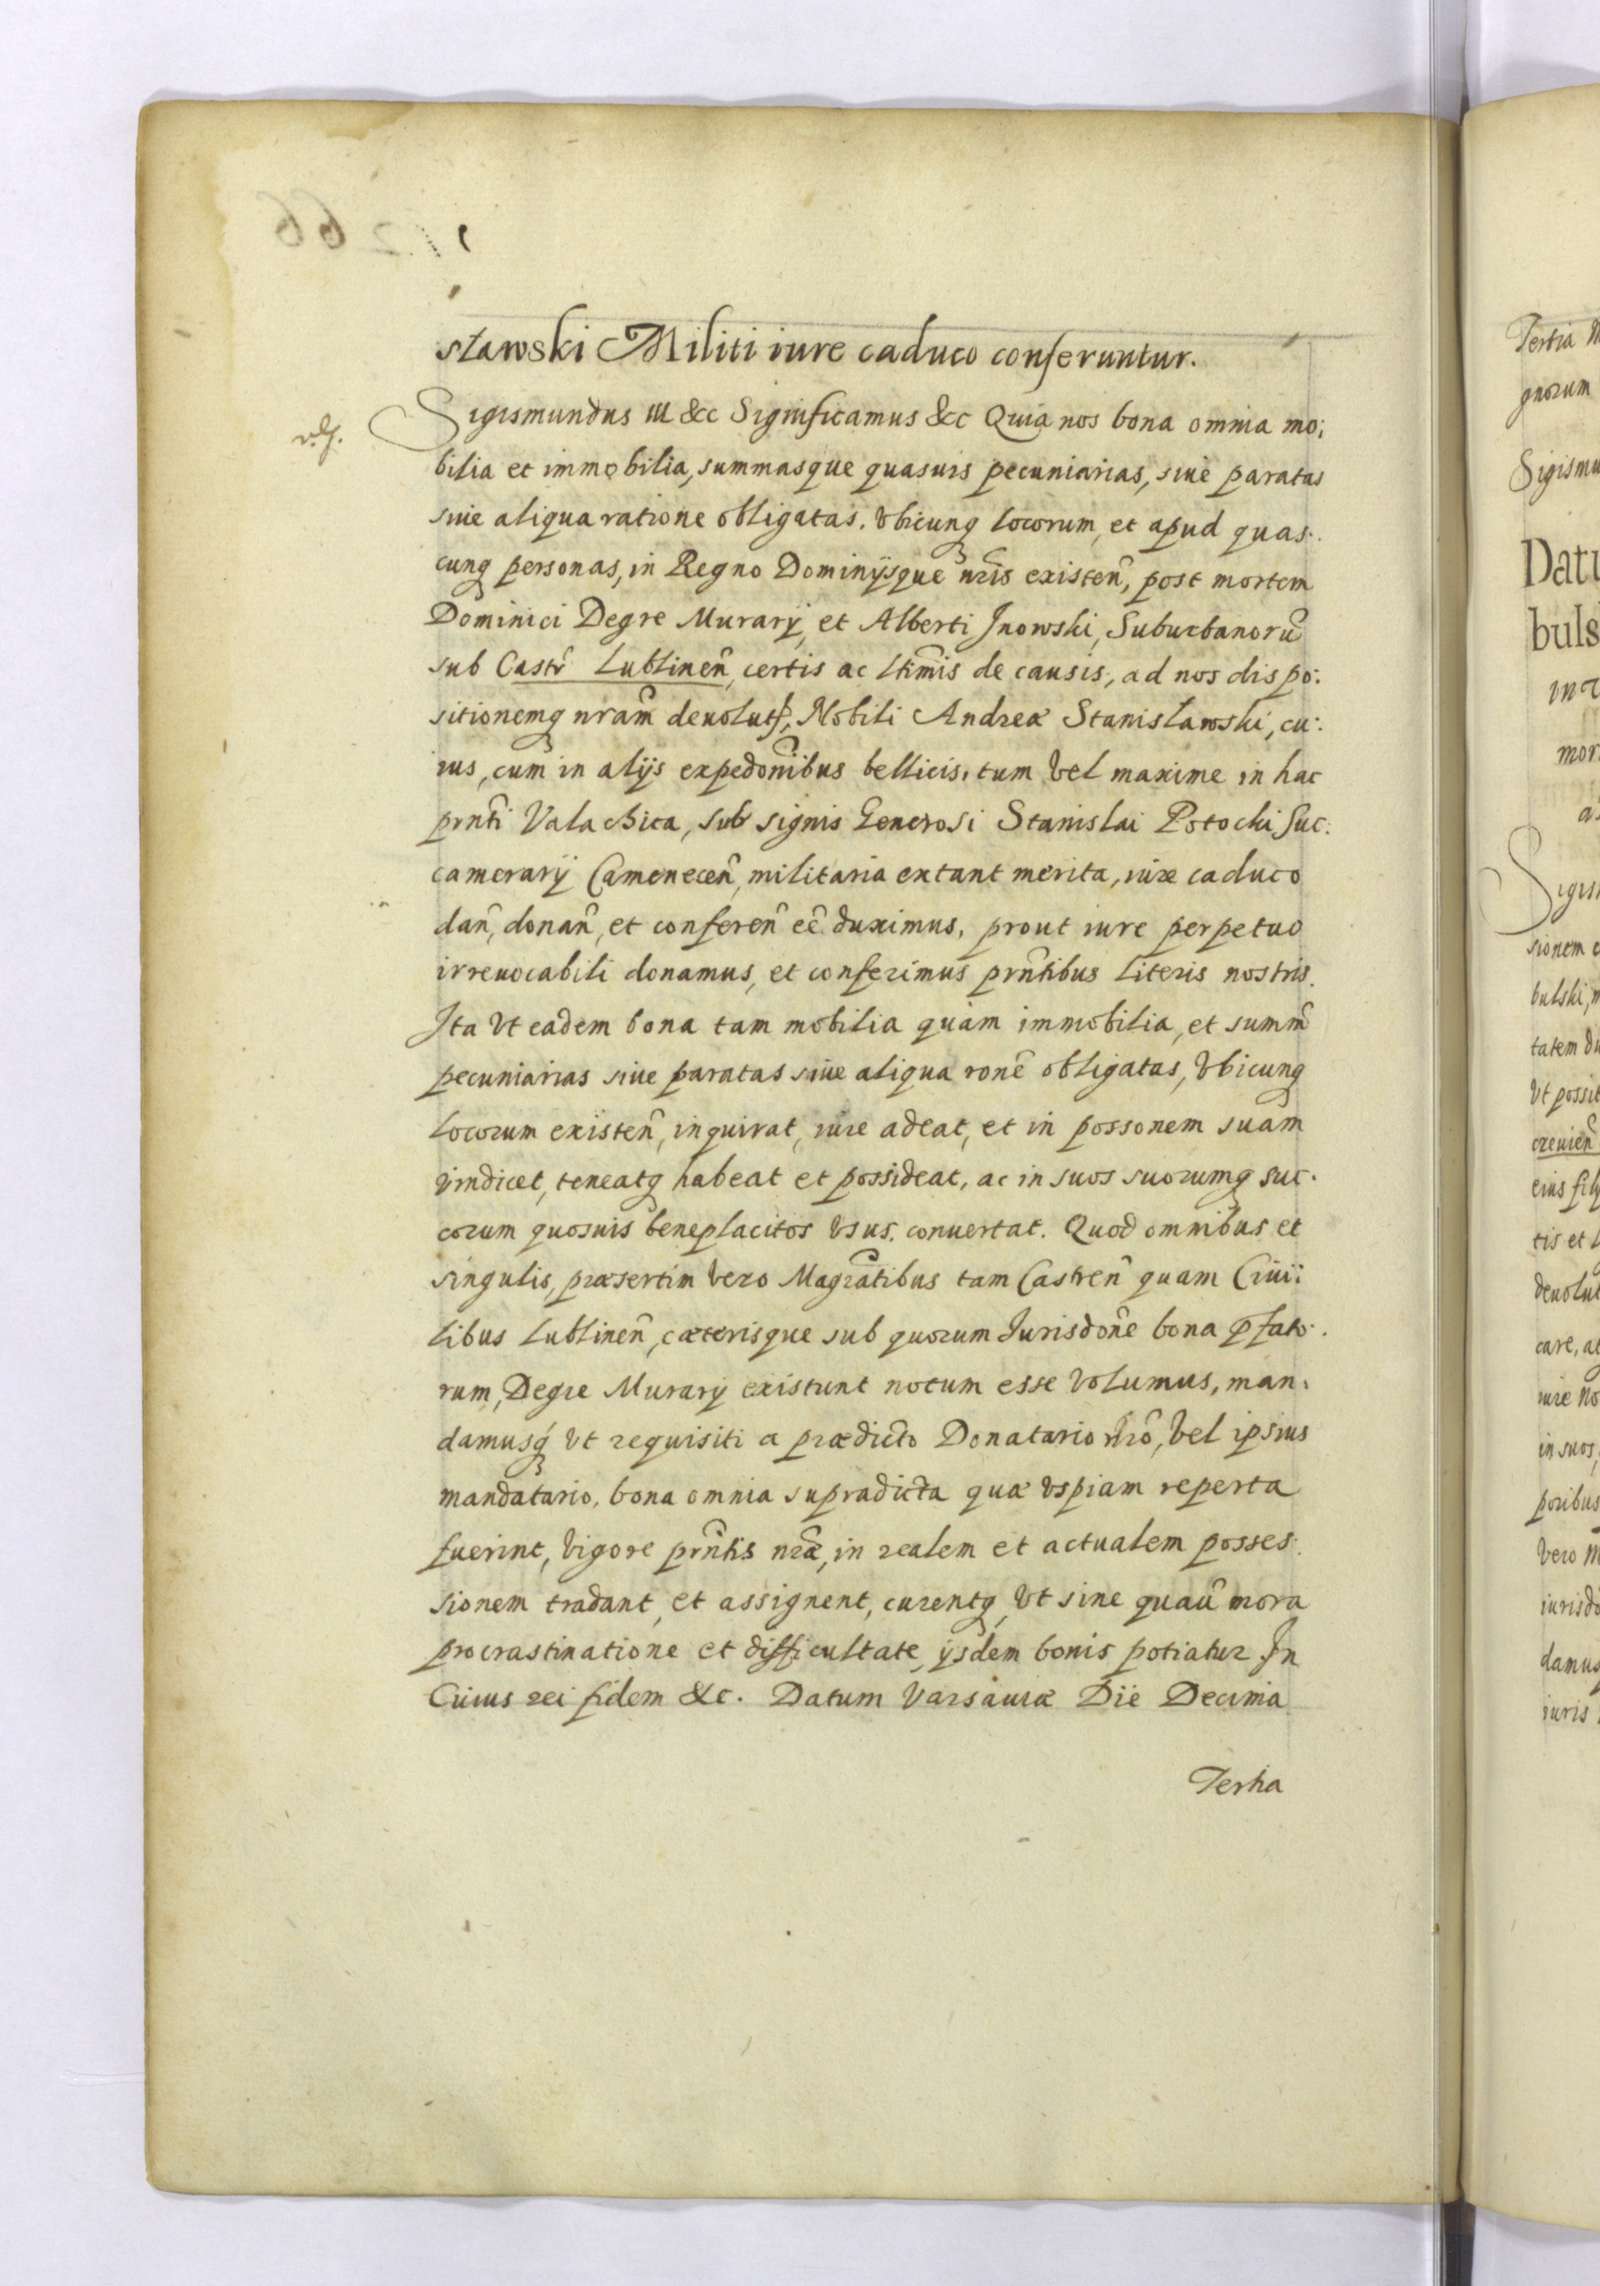 stawski Militi iure caduco conferuntur.
Sigismundus III &c Significamus &c Quia nos bona omnia mo:
bilia et immobilia, summasque quasuis pecuniarias, siue paratas
siue aliqua ratione obligatas, vbicunq locorum, et apud quas:
cunq personas, in Regno Dominijsque nris existen, post mortem
Dominici Degre Murarij, et Alberti Jnowski, Suburbanoru
sub Castr Lublinen, certis ac ltimis de causis, ad nos dispo:
sitionemq nram deuolut, Nobili Andreæ Stanislawski, cu:
ius, cum in alijs expedonibus bellicis, tum vel maxime in hac
prnti Valachica, sub signis Generosi Stanislai Potocki Suc:
camerarij Camenecen, militaria extant merita, iure caduco
dan, donan, et conferen ee duximus, prout iure perpetuo
irreuocabili donamus, et conferimus prntibus literis nostris.
Jta vt eadem bona tam mobilia quam immobilia, et summ
pecuniarias siue paratas siue aliqua rone obligatas, vbicunq
locorum existen, inquirat, iure adeat, et in possonem suam
vindicet, teneatq habeat et possideat, ac in suos suorumq suc:
corum quosuis beneplacitos vsus, conuertat. Quod omnibus et
singulis, præsertim vero Magratibus tam Castren quam Ciui:
libus Lublinen, cæterisque sub quorum Jurisdone bona pfato:
rum, Degre Murarij existunt notum esse volumus, man:
damusq vt requisiti a prædicto Donatario nro, vel ipsius
mandatario, bona omnia supradicta quæ vspiam reperta
fuerint, vigore prntis nræ, in realem et actualem posses:
sionem tradant, et assignent, curentq, vt sine quau mora
procrastinatione et difficultate, ijsdem bonis potiatur Jn
Cuius rei fidem &c. Datum Varsauiæ Die Decima
Tertia
Tertia
gnorum
Sigismu
Datu
buls
mor
Sigis
sionem
bulski,
tatem du
vt possit
crevien
eius fily
tis et
deuolut
care, at
iure no
in suos,
poribus
vero m
iurisdo
damus
iuris